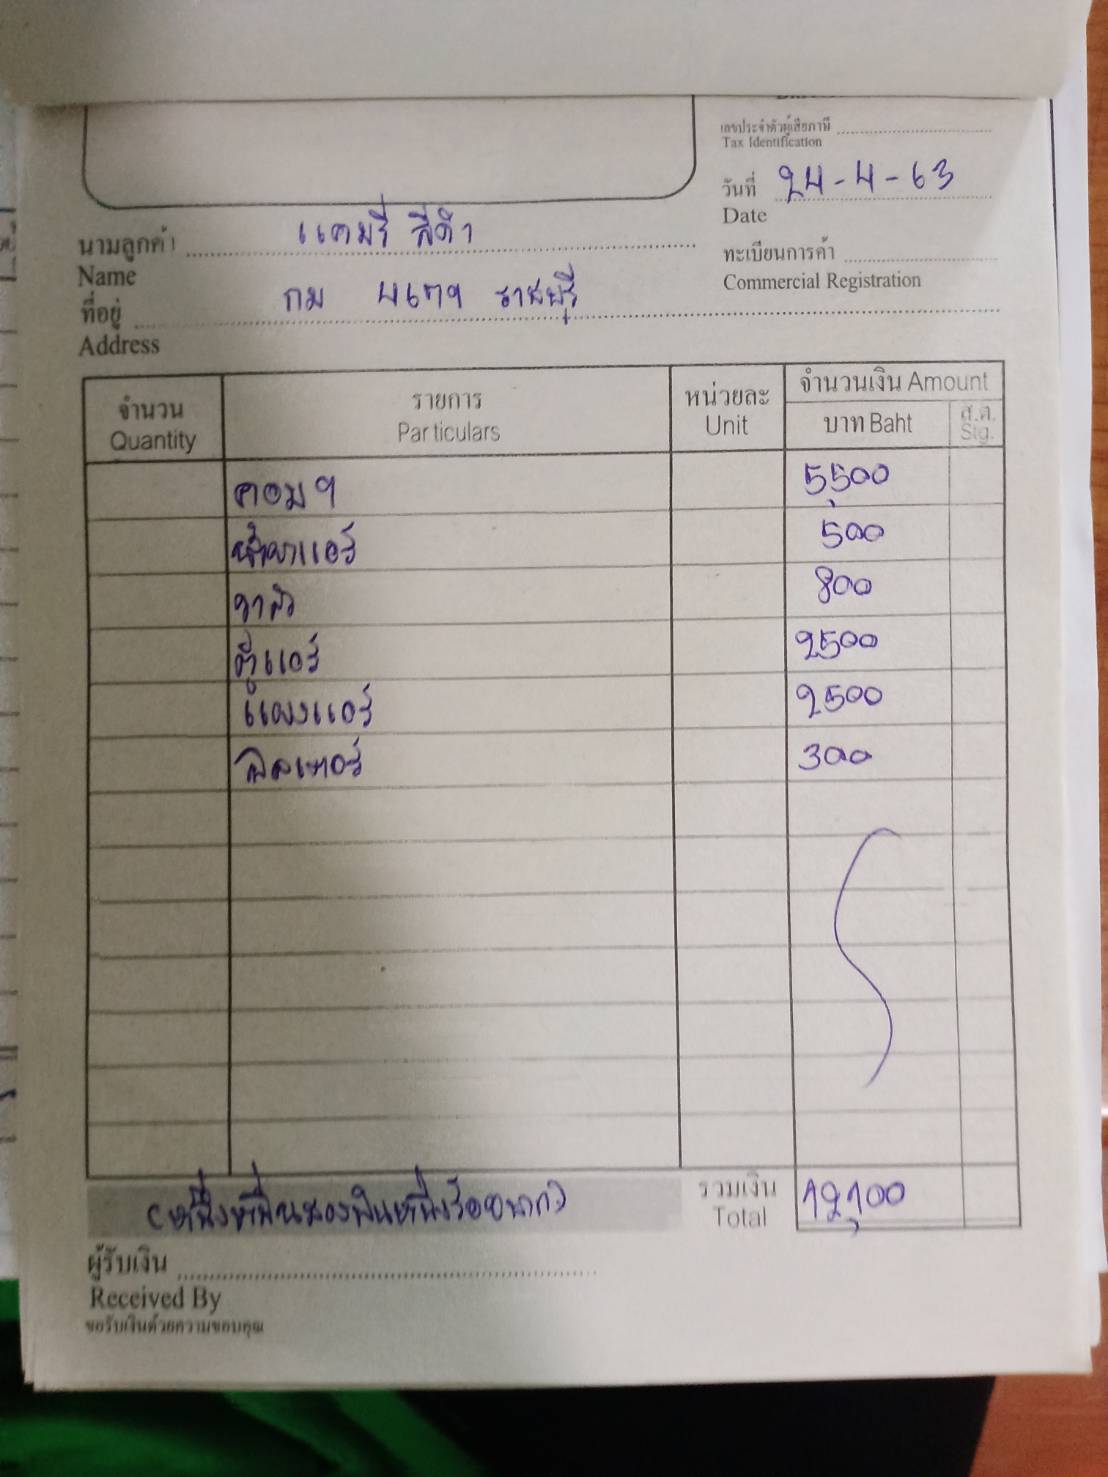 เลขประจำตัวผู้เสียภาษี
Tax Identification
วันที่ 24-4-63
Date
นามลูกค้า แคมรี่ สีดำ
Name
ทะเบียนการค้า
Commercial Registration
ที่อยู่ กม 4679 ราชบุรี
Address
จำนวน รายการ หน่วยละ จำนวนเงิน Amount
Quantity Particulars Unit บาท Baht ส.ต. Stg.
คอมฯ 5,500
น้ำยาแอร์ 500
วาล์ว 800
ตู้แอร์ 2500
แผงแอร์ 2500
ฟิลเตอร์ 300
(หนึ่งหมื่นสองพันหนึ่งร้อยบาท) รวมเงิน 12,100
Total
ผู้รับเงิน
Received By
ขอรับเงินด้วยความขอบคุณ